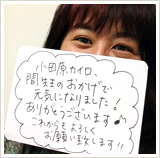 小田原カイロ、
間先生のおかげで
元気になりました!
ありがとうございます♪
これからもよろしく
お願い致します!!